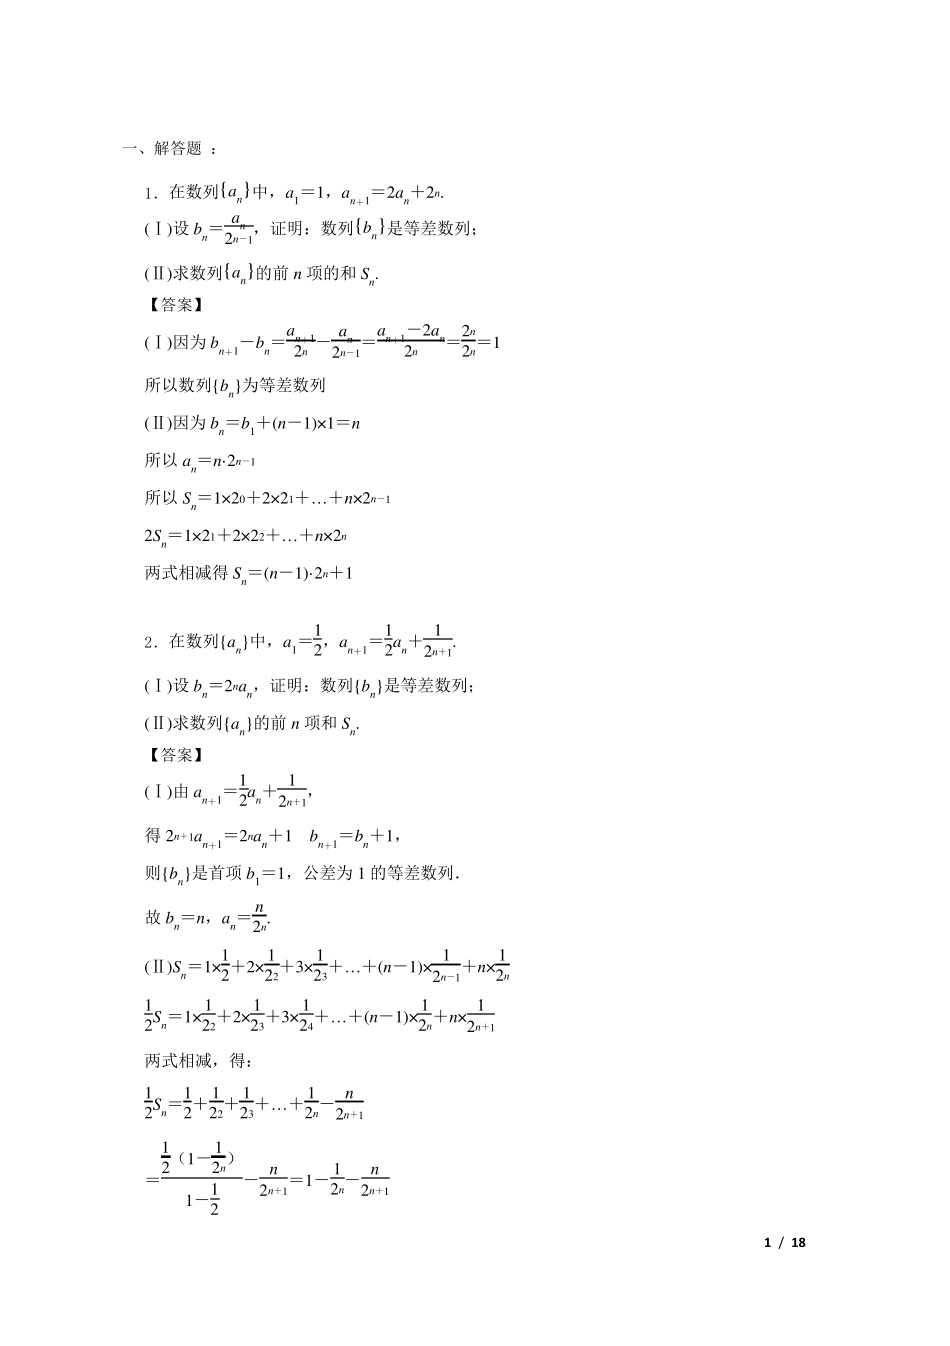 一、解答题 ：
1．在数列{aₙ}中，a₁＝1，aₙ₊₁＝2aₙ＋2ⁿ.
(Ⅰ)设 bₙ＝aₙ/2ⁿ⁻¹，证明：数列{bₙ}是等差数列；
(Ⅱ)求数列{aₙ}的前 n 项的和 Sₙ.
【答案】
(Ⅰ)因为 bₙ₊₁－bₙ＝aₙ₊₁/2ⁿ－aₙ/2ⁿ⁻¹＝(aₙ₊₁－2aₙ)/2ⁿ＝2ⁿ/2ⁿ＝1
所以数列{bₙ}为等差数列
(Ⅱ)因为 bₙ＝b₁＋(n－1)×1＝n
所以 aₙ＝n·2ⁿ⁻¹
所以 Sₙ＝1×2⁰＋2×2¹＋…＋n×2ⁿ⁻¹
2Sₙ＝1×2¹＋2×2²＋…＋n×2ⁿ
两式相减得 Sₙ＝(n－1)·2ⁿ＋1
2．在数列{aₙ}中，a₁＝1/2，aₙ₊₁＝1/2aₙ＋1/2ⁿ⁺¹.
(Ⅰ)设 bₙ＝2ⁿaₙ，证明：数列{bₙ}是等差数列；
(Ⅱ)求数列{aₙ}的前 n 项和 Sₙ.
【答案】
(Ⅰ)由 aₙ₊₁＝1/2aₙ＋1/2ⁿ⁺¹，
得 2ⁿ⁺¹aₙ₊₁＝2ⁿaₙ＋1 bₙ₊₁＝bₙ＋1，
则{bₙ}是首项 b₁＝1，公差为 1 的等差数列．
故 bₙ＝n，aₙ＝n/2ⁿ.
(Ⅱ)Sₙ＝1×1/2＋2×1/2²＋3×1/2³＋…＋(n－1)×1/2ⁿ⁻¹＋n×1/2ⁿ
1/2Sₙ＝1×1/2²＋2×1/2³＋3×1/2⁴＋…＋(n－1)×1/2ⁿ＋n×1/2ⁿ⁺¹
两式相减，得：
1/2Sₙ＝1/2＋1/2²＋1/2³＋…＋1/2ⁿ－n/2ⁿ⁺¹
＝1/2（1－1/2ⁿ）/(1－1/2)－n/2ⁿ⁺¹＝1－1/2ⁿ－n/2ⁿ⁺¹
1 / 18